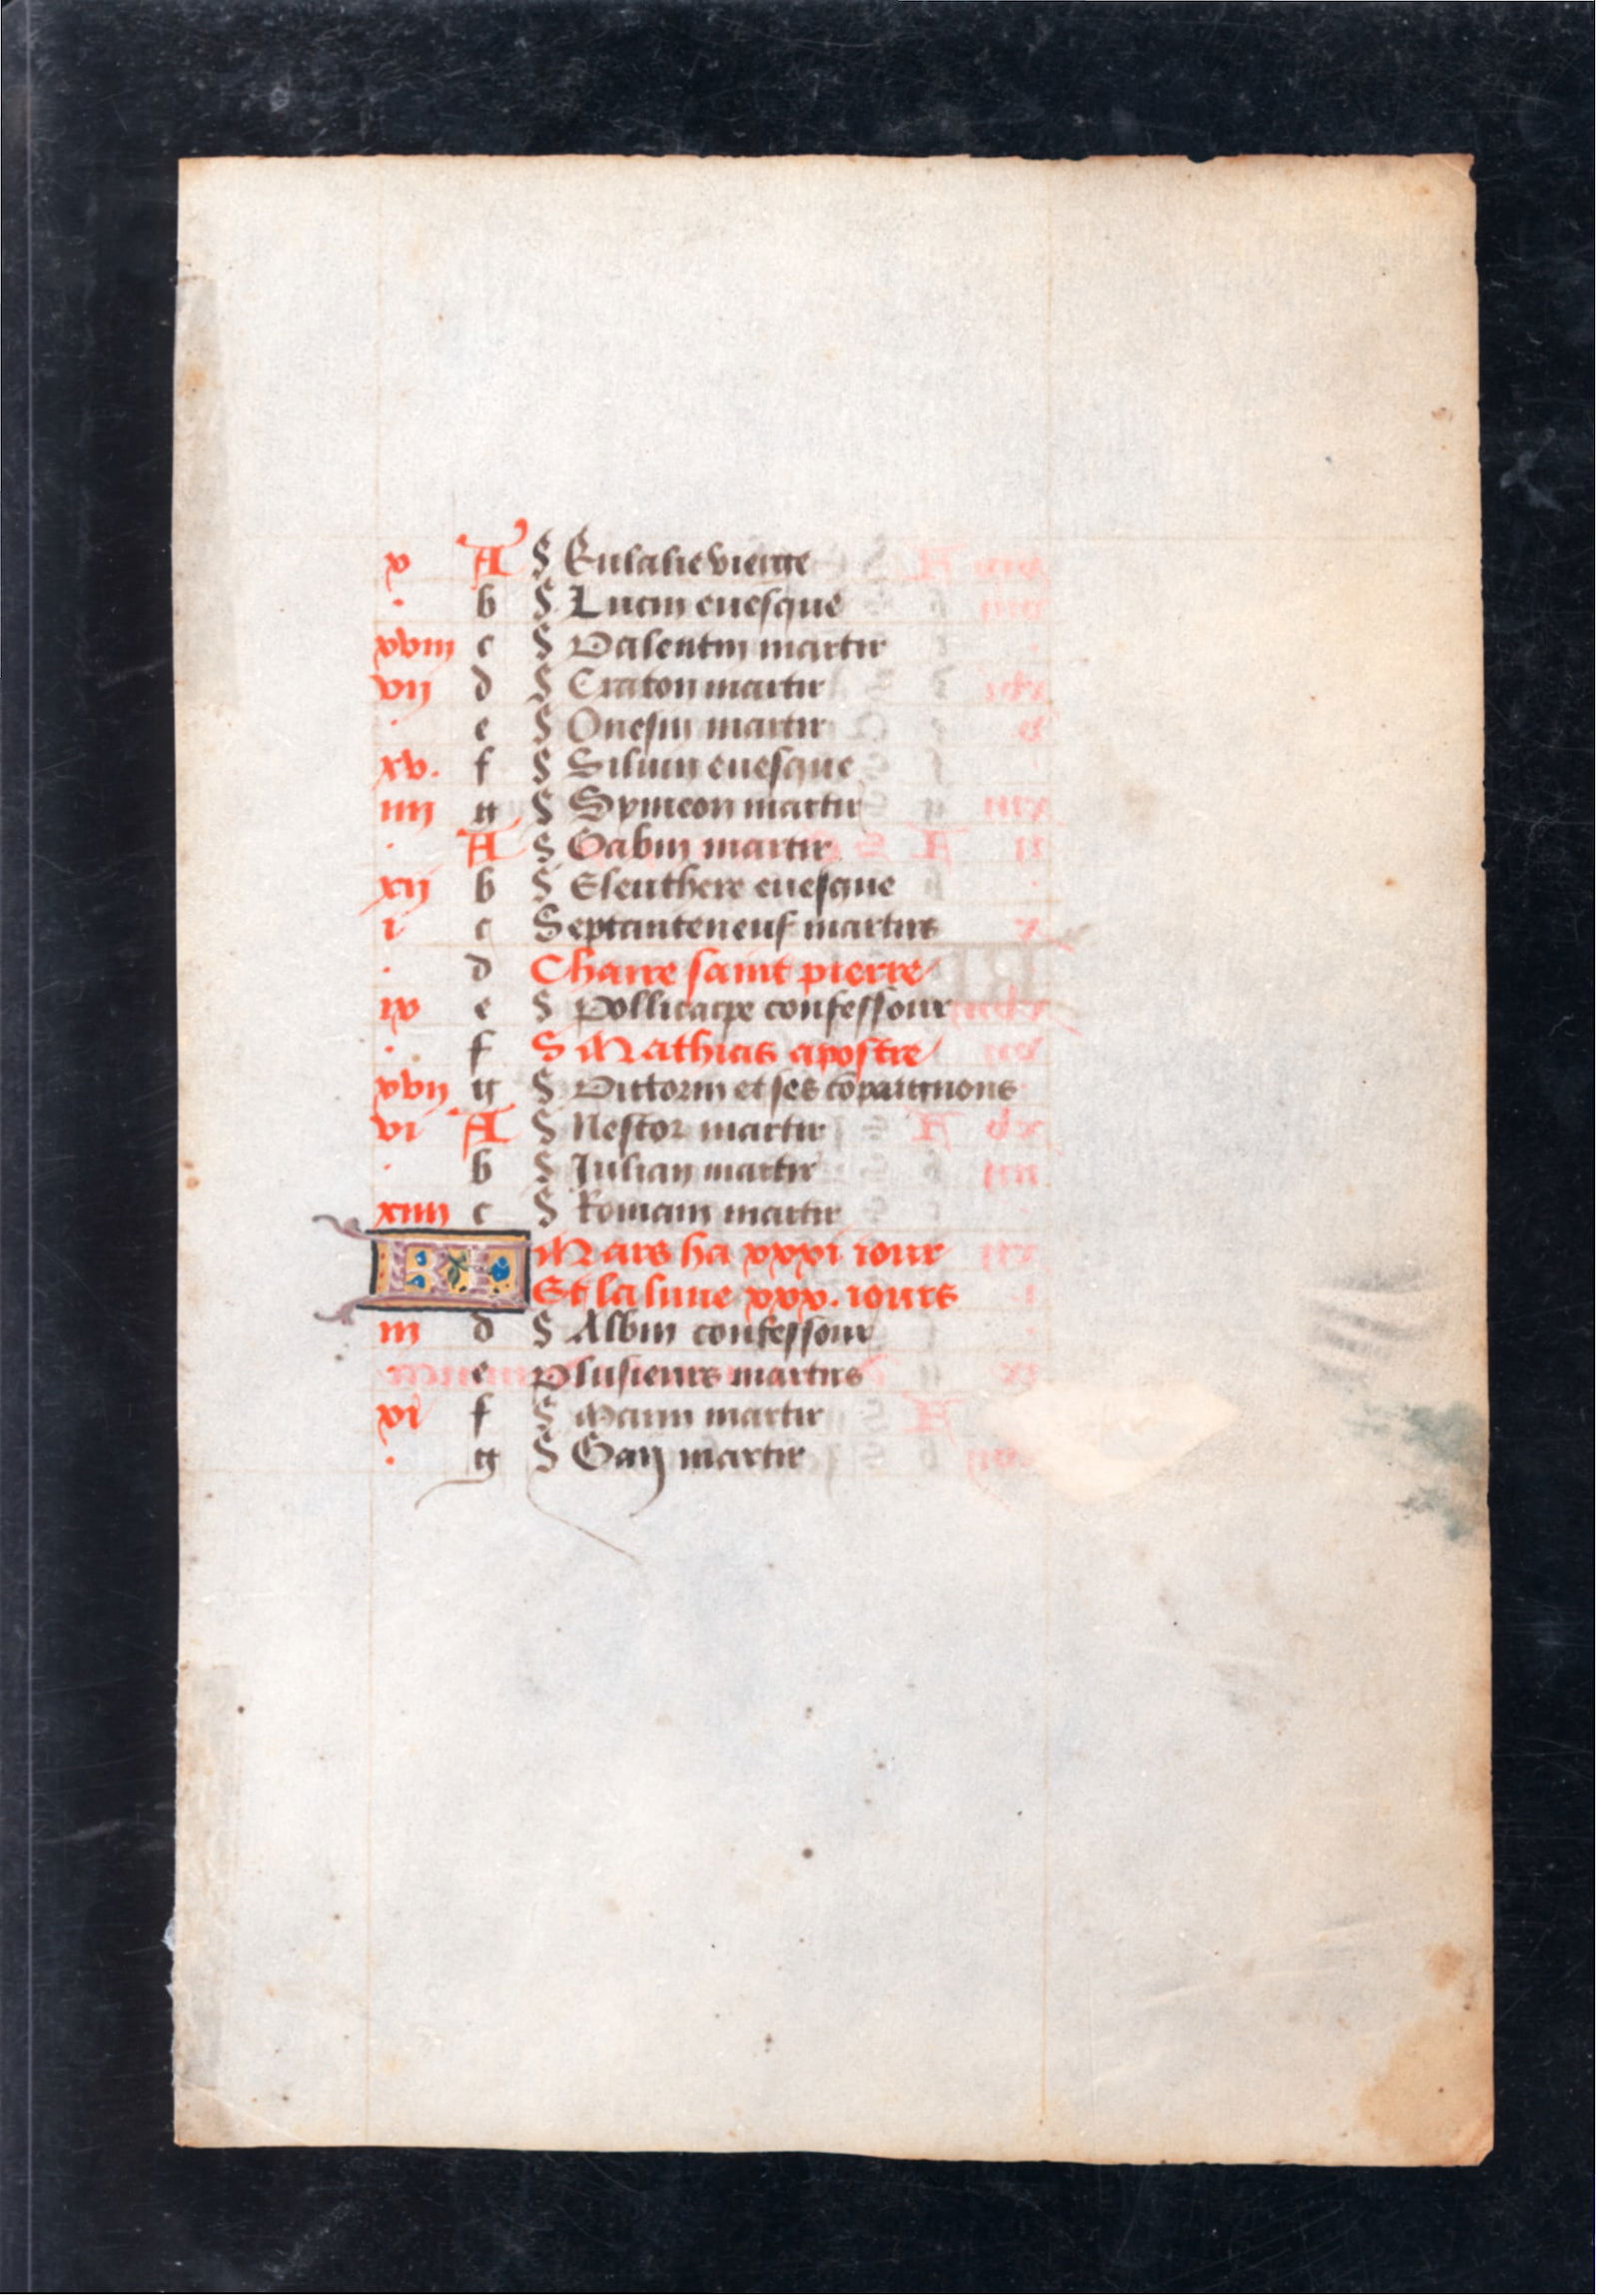 v A S Eulalie vierge
. b S Lucin euesque
xviii c S Valentin martir
vii d S Craton martir
. e S Onesin martir
xv. f S Siluin euesque
iiii g S Symeon martir
. A S Gabin martir
xii b S Eleuthere euesque
i c Septanteneuf martirs
. d Chaire saint pierre
ix e S Pollicarpe confessour
. f S Mathias apostre
xvii g S Victorin et ses copaignons
vi A S Nestor martir
. b S Julian martir
xiiii c S Romain martir
KL Mars ha xxxi iour
Et la lune xxx. iours
iii d S Albin confessour
. e Plusieurs martirs
xi f S Marin martir
. g S Gaij martir